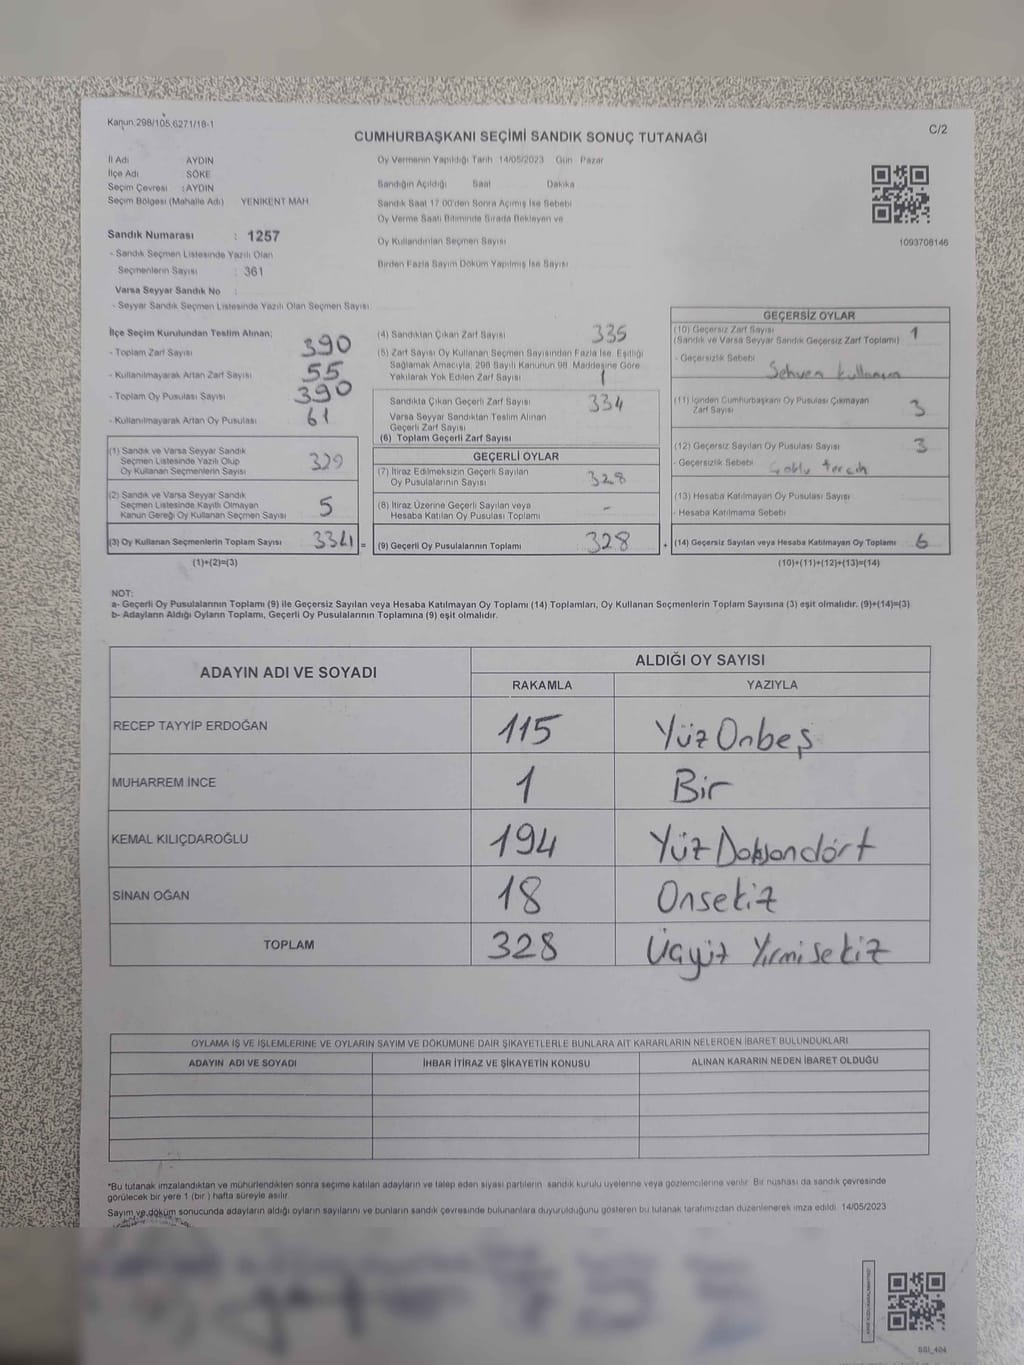 Kanun 298/105 6271/18-1
C/2
CUMHURBAŞKANI SEÇİMİ SANDIK SONUÇ TUTANAĞI
İl Adı AYDIN
İlçe Adı SÖKE
Seçim Çevresi : AYDIN
Seçim Bölgesi (Mahalle Adı) YENİKENT MAH
Sandık Numarası : 1257
- Sandık Seçmen Listesinde Yazılı Olan
Seçmenlerin Sayısı : 361
Varsa Seyyar Sandık No :
- Seyyar Sandık Seçmen Listesinde Yazılı Olan Seçmen Sayısı
Oy Vermenin Yapıldığı Tarih 14/05/2023 Gün Pazar
Sandığın Açıldığı Saat Dakika
Sandık Saat 17 00'den Sonra Açımış İse Sebebi
Oy Verme Saati Bitiminde Sırada Bekleyen ve
Oy Kullandırılan Seçmen Sayısı
Birden Fazla Sayım Döküm Yapılmış İse Sayısı
1093708146
İlçe Seçim Kurulundan Teslim Alınan;
- Toplam Zarf Sayısı 390
- Kullanılmayarak Artan Zarf Sayısı 55
- Toplam Oy Pusulası Sayısı 390
- Kullanılmayarak Artan Oy Pusulası 61
(1) Sandık ve Varsa Seyyar Sandık
Seçmen Listesinde Yazılı Olup
Oy Kullanan Seçmenlerin Sayısı 329
(2) Sandık ve Varsa Seyyar Sandık
Seçmen Listesinde Kayıtlı Olmayan
Kanun Gereği Oy Kullanan Seçmen Sayısı 5
(3) Oy Kullanan Seçmenlerin Toplam Sayısı 334 =
(1)+(2)=(3)
(4) Sandıktan Çıkan Zarf Sayısı 335
(5) Zarf Sayısı Oy Kullanan Seçmen Sayısından Fazla İse, Eşitliği
Sağlamak Amacıyla, 298 Sayılı Kanunun 98. Maddesine Göre
Yakılarak Yok Edilen Zarf Sayısı 1
Sandıkta Çıkan Geçerli Zarf Sayısı 334
Varsa Seyyar Sandıktan Teslim Alınan
Geçerli Zarf Sayısı
(6) Toplam Geçerli Zarf Sayısı
GEÇERLİ OYLAR
(7) İtiraz Edilmeksizin Geçerli Sayılan
Oy Pusulalarının Sayısı 328
(8) İtiraz Üzerine Geçerli Sayılan veya
Hesaba Katılan Oy Pusulası Toplamı -
(9) Geçerli Oy Pusulalarının Toplamı 328 +
GEÇERSİZ OYLAR
(10) Geçersiz Zarf Sayısı 1
(Sandık ve Varsa Seyyar Sandık Geçersiz Zarf Toplamı)
- Geçersizlik Sebebi Sehven kullanım
(11) İçinden Cumhurbaşkanı Oy Pusulası Çıkmayan
Zarf Sayısı 3
(12) Geçersiz Sayılan Oy Pusulası Sayısı 3
- Geçersizlik Sebebi Çoklu tercih
(13) Hesaba Katılmayan Oy Pusulası Sayısı
- Hesaba Katılmama Sebebi
(14) Geçersiz Sayılan veya Hesaba Katılmayan Oy Toplamı 6
(10)+(11)+(12)+(13)=(14)
NOT:
a- Geçerli Oy Pusulalarının Toplamı (9) ile Geçersiz Sayılan veya Hesaba Katılmayan Oy Toplamı (14) Toplamları, Oy Kullanan Seçmenlerin Toplam Sayısına (3) eşit olmalıdır. (9)+(14)=(3)
b- Adayların Aldığı Oyların Toplamı, Geçerli Oy Pusulalarının Toplamına (9) eşit olmalıdır.
ADAYIN ADI VE SOYADI ALDIĞI OY SAYISI
RAKAMLA YAZIYLA
RECEP TAYYİP ERDOĞAN 115 YüzOnbeş
MUHARREM İNCE 1 Bir
KEMAL KILIÇDAROĞLU 194 YüzDoksandört
SİNAN OĞAN 18 Onsekiz
TOPLAM 328 Üçyüz Yirmisekiz
OYLAMA İŞ VE İŞLEMLERİNE VE OYLARIN SAYIM VE DÖKÜMÜNE DAİR ŞİKAYETLERLE BUNLARA AİT KARARLARIN NELERDEN İBARET BULUNDUKLARI
ADAYIN ADI VE SOYADI İHBAR İTİRAZ VE ŞİKAYETİN KONUSU ALINAN KARARIN NEDEN İBARET OLDUĞU
*Bu tutanak imzalandıktan ve mühürlendikten sonra seçime katılan adayların ve talep eden siyasi partilerin sandık kurulu üyelerine veya gözlemcilerine verilir. Bir nüshası da sandık çevresinde
görülecek bir yere 1 (bir ) hafta süreyle asılır.
Sayım ve döküm sonucunda adayların aldığı oyların sayılarını ve bunların sandık çevresinde bulunanlara duyurulduğunu gösteren bu tutanak tarafımızdan düzenlenerek imza edildi. 14/05/2023
SSI_404